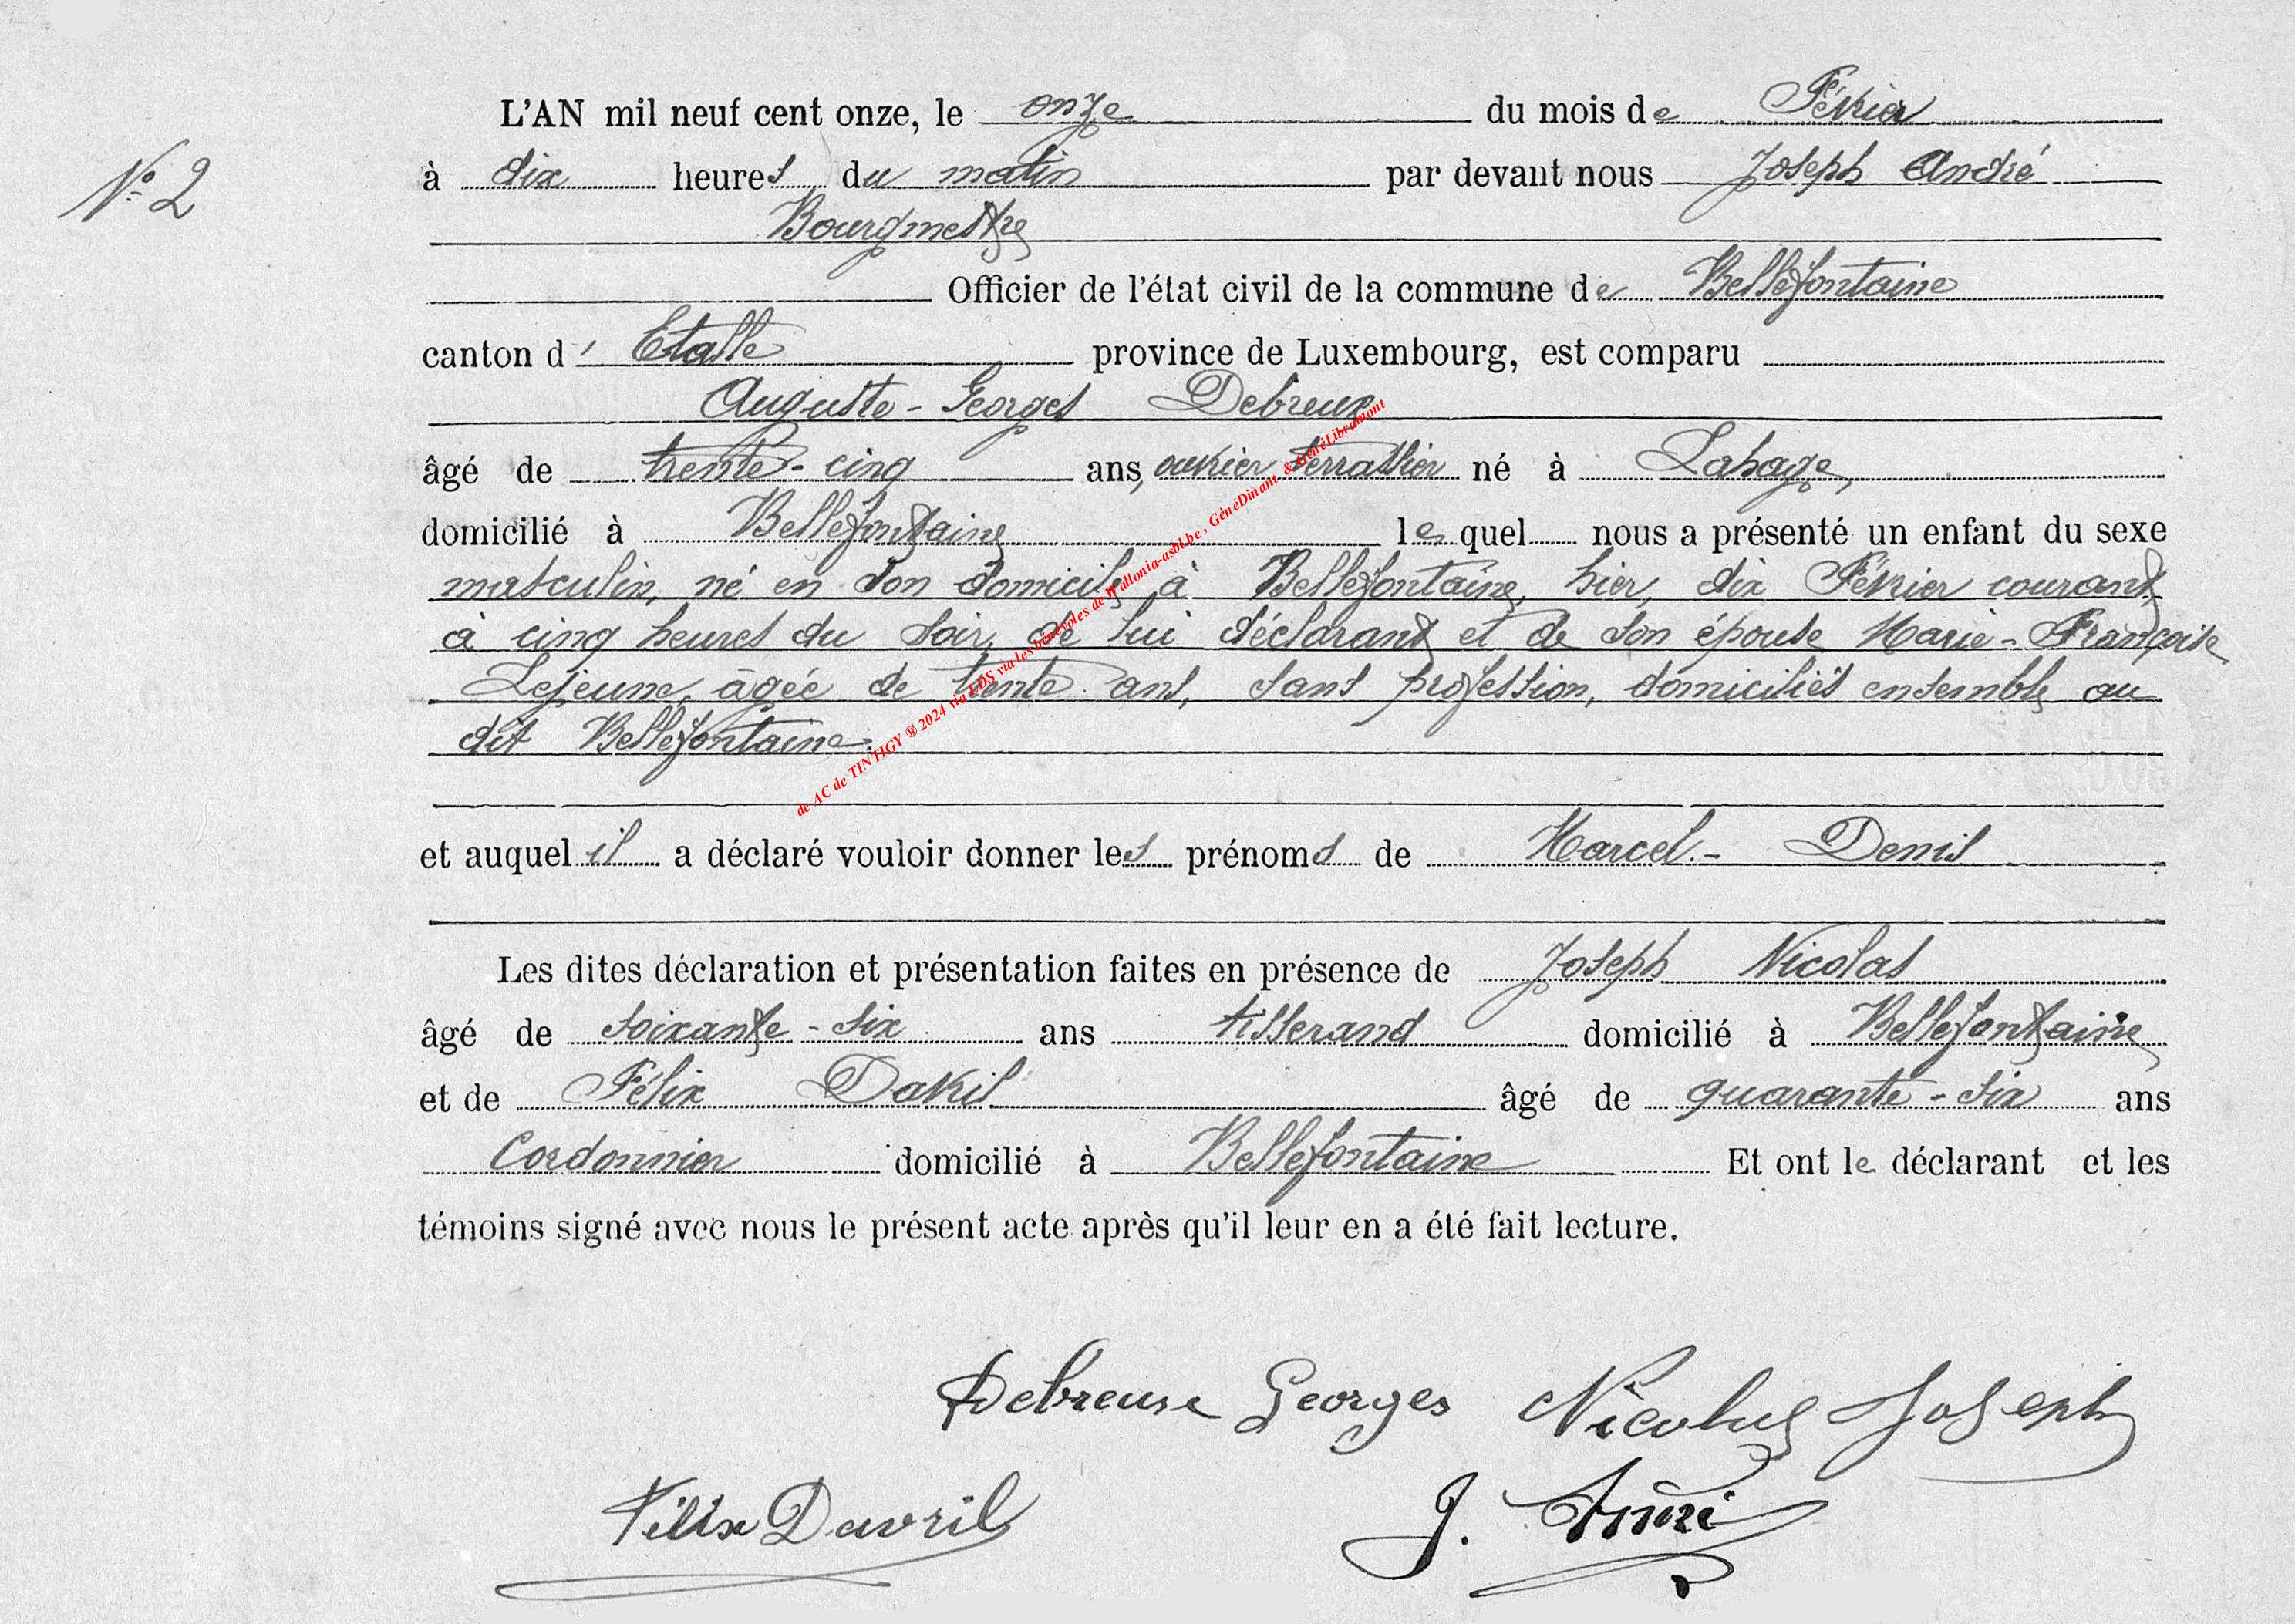 L'AN mil neuf cent onze, le onze du mois de Février
N° 2
à dix heures du matin par devant nous Joseph André
Bourgmestre
Officier de l'état civil de la commune de Bellefontaine
canton d' Etalle province de Luxembourg, est comparu
Auguste-Georges Debreux
âgé de trente-cinq ans, ouvrier terrassier né à Lahage,
domicilié à Bellefontaine lequel nous a présenté un enfant du sexe
masculin, né en son domicile à Bellefontaine, hier, dix Février courant
à cinq heures du soir, de lui déclarant et de son épouse Marie-Françoise
Lejeune, âgée de trente ans, sans profession, domiciliés ensemble au
dit Bellefontaine.
de AC de TINTIGY ® 2024 via LDS via les bénévoles de Wallonia-asbl.be, GénéDinant & GénéLibramont
et auquel il a déclaré vouloir donner les prénoms de Marcel.- Denis
Les dites déclaration et présentation faites en présence de Joseph Nicolas
âgé de soixante-six ans tisserand domicilié à Bellefontaine
et de Félix Davril âgé de quarante-six ans
Cordonnier domicilié à Bellefontaine Et ont le déclarant et les
témoins signé avec nous le présent acte après qu'il leur en a été fait lecture.
Debreuse Georges Nicolas Joseph
Félix Davril J. André